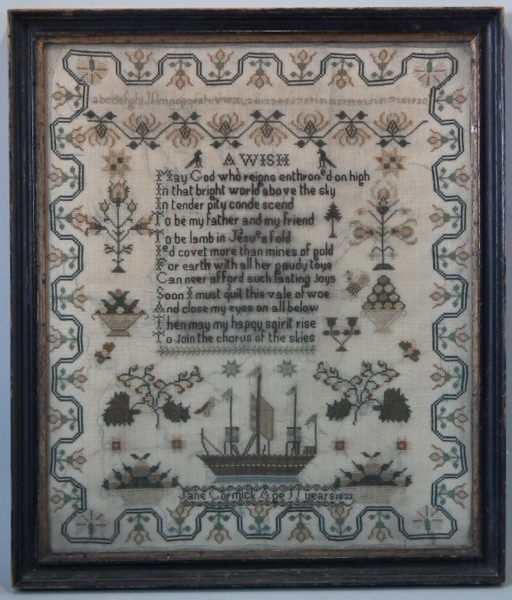 abcdefghiJklmnopqrstuvwxyz
A WISH
May God who reigns enthron'd on high
In that bright world above the sky
In tender pity conde scend
To be my father and my friend
To be lamb in Jesus fold
I'd covet more than mines of gold
For earth with all her gaudy toys
Can neer afford such lasting Joys
Soon I must quit this vale of woe
And close my eyes on all below
Then may my happy spirit rise
To Join the chorus of the skies
Jane Cormick Age 11 years